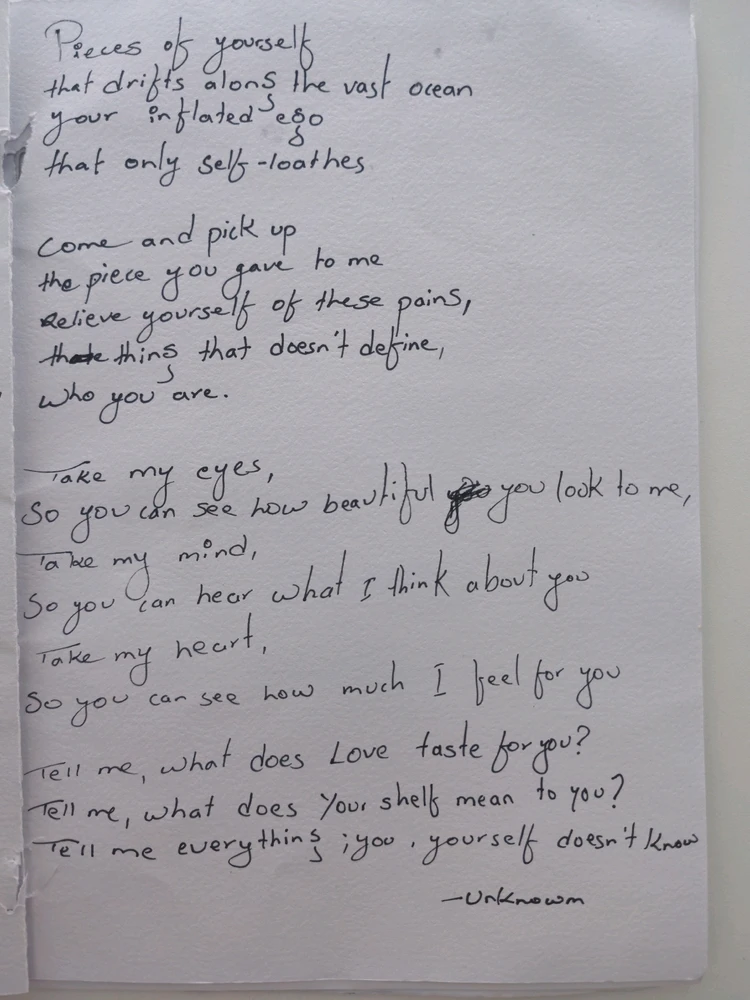 Pieces of yourself
that drifts along the vast ocean
your inflated ego
that only self-loathes
Come and pick up
the piece you gave to me
Relieve yourself of these pains,
thing that doesn't define,
who you are.
Take my eyes,
So you can see how beautiful you look to me,
Take my mind,
So you can hear what I think about you
Take my heart,
So you can see how much I feel for you
Tell me, what does Love taste for you?
Tell me, what does Your shelf mean to you?
Tell me everything ; you, yourself doesn't know
-Unknowm